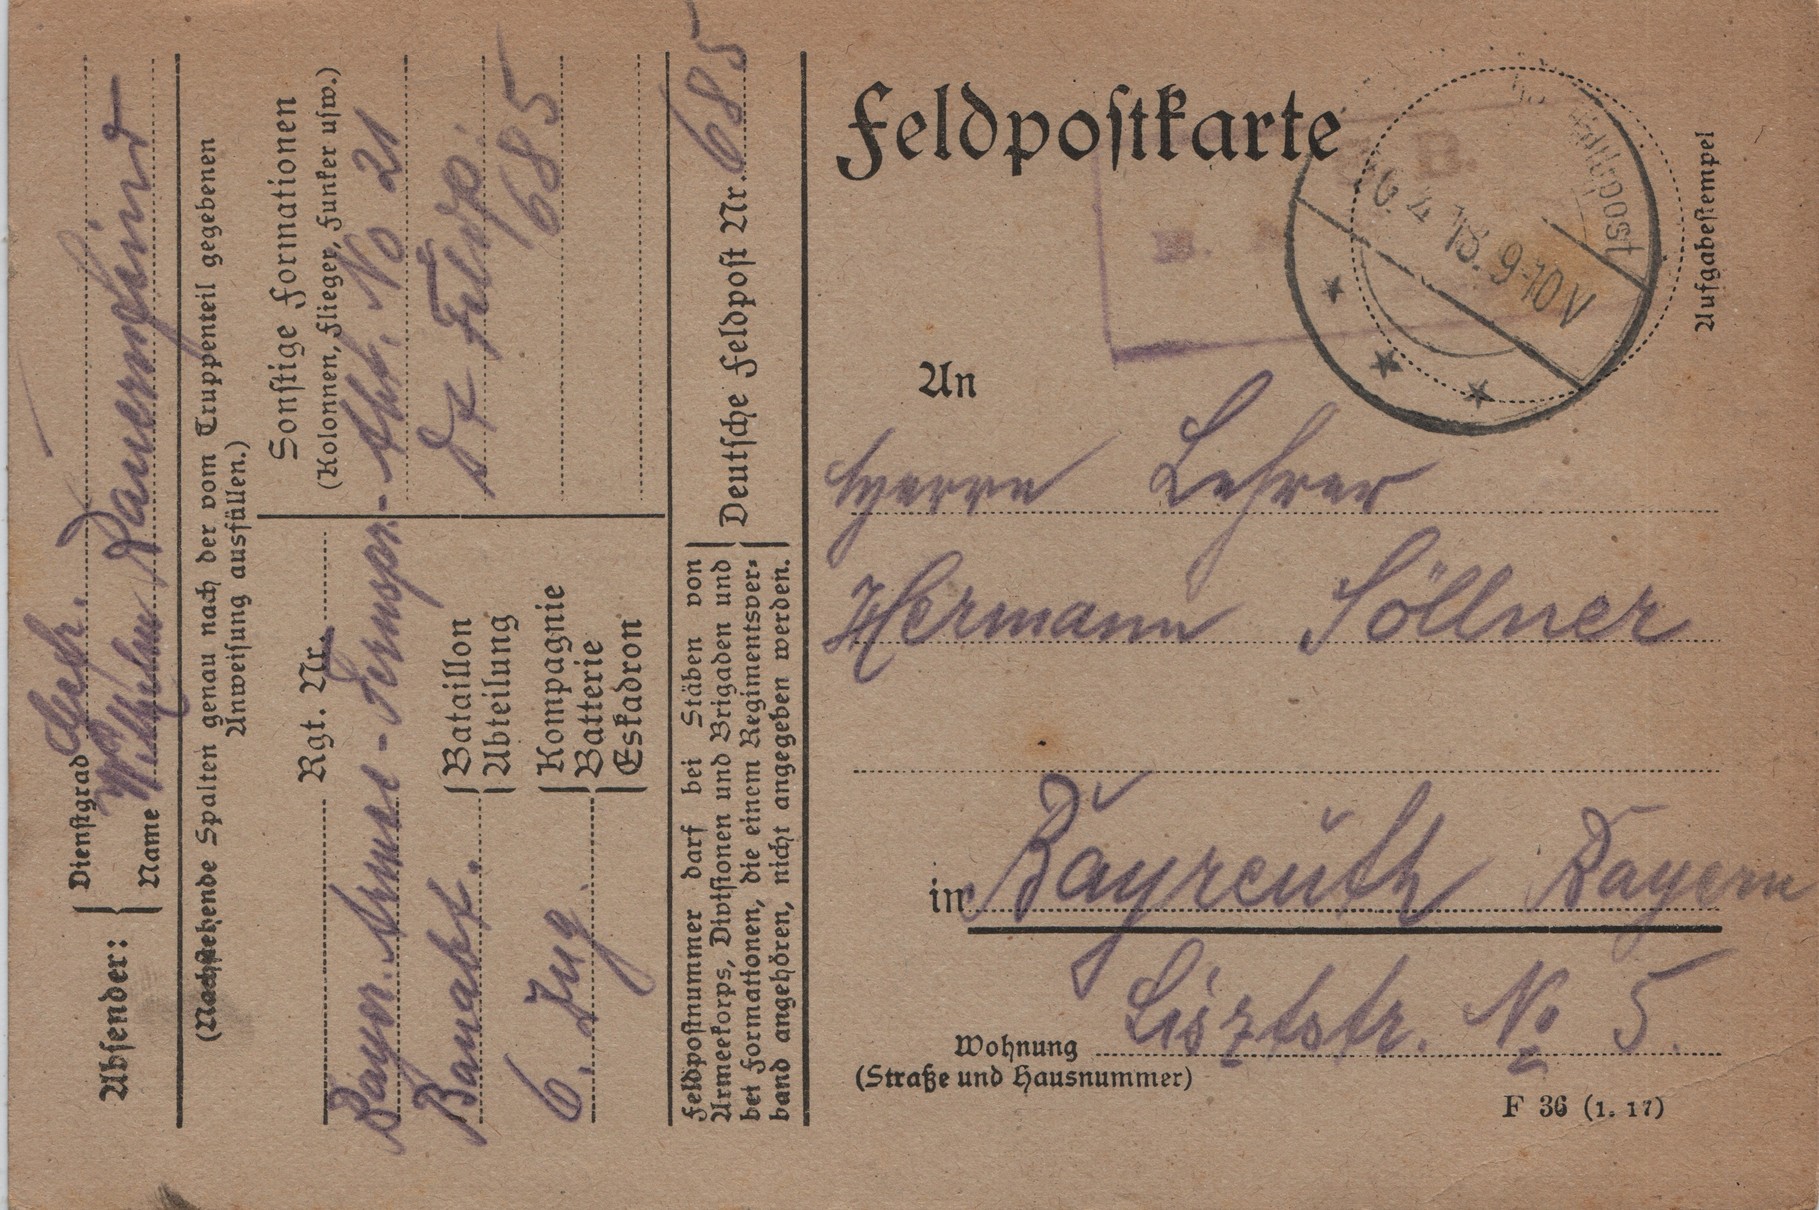 Absender:
Dienstgrad
Name Wilhelm
(Nachstehende Spalten genau nach der vom Truppenteil gegebenen
Anweisung ausfüllen.)
Rgt. Nr.
Sonstige Formationen
(Kolonnen, Flieger, Funker usw.)
Bayer. Armee-Fernspr.-Abt. No 21
Bataillon
Abteilung
Bauabt.
Dt Feldp.
685
Kompagnie
Batterie
Eskadron
6. Zug
Feldpostnummer darf bei Stäben von
Armeekorps, Divisionen und Brigaden und
bei Formationen, die einem Regimentsver-
band angehören, nicht angegeben werden.
Deutsche Feldpost Nr. 685
Feldpostkarte
Aufgabestempel
6. 4 18. 9-10 V
An
Herrn Lehrer
Hermann Söllner
in Bayreuth Bayern
Lisztstr. No 5.
Wohnung
(Straße und Hausnummer)
F 36 (1. 17)